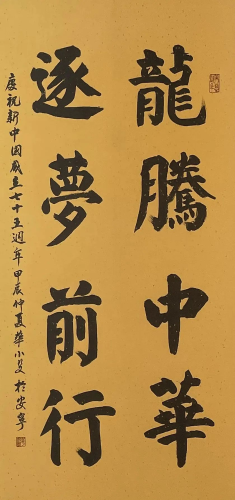 龍騰中華
逐夢前行
慶祝新中国成立七十五週年 甲辰仲夏 華小艾 於安寧